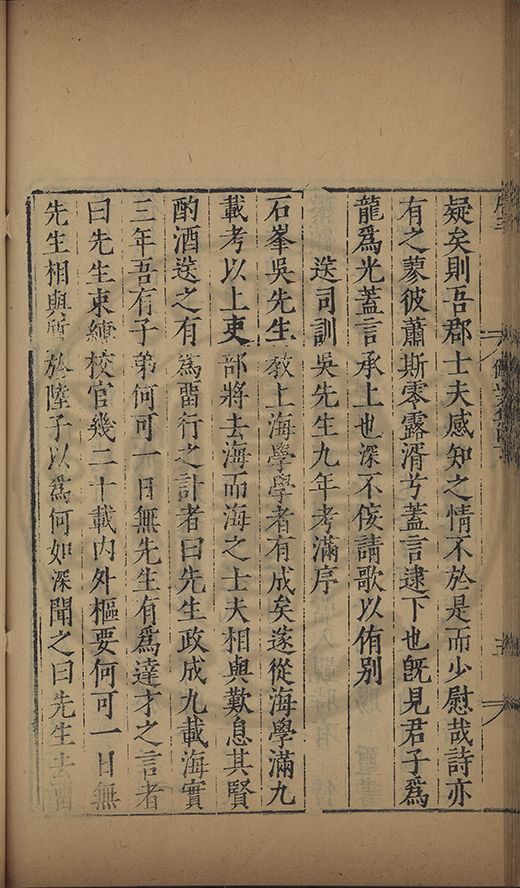 疑矣則吾郡士夫感知之情不於是而少慰哉詩亦
有之蓼彼蕭斯零露湑兮蓋言逮下也旣見君子爲
龍爲光蓋言承上也深不佞請歌以侑别
送司訓吳先生九年考滿序
石峯吳先生教上海學學者有成矣遂從海學滿九
載考以上吏部將去海而海之士夫相與歎息其賢
酌酒送之有爲畱行之計者曰先生政成九載海實
三年吾有子弟何可一日無先生有爲達才之言者
曰先生束縛校官幾二十載内外樞要何可一日無
先生相與質於陸子以爲何如深聞之曰先生去畱